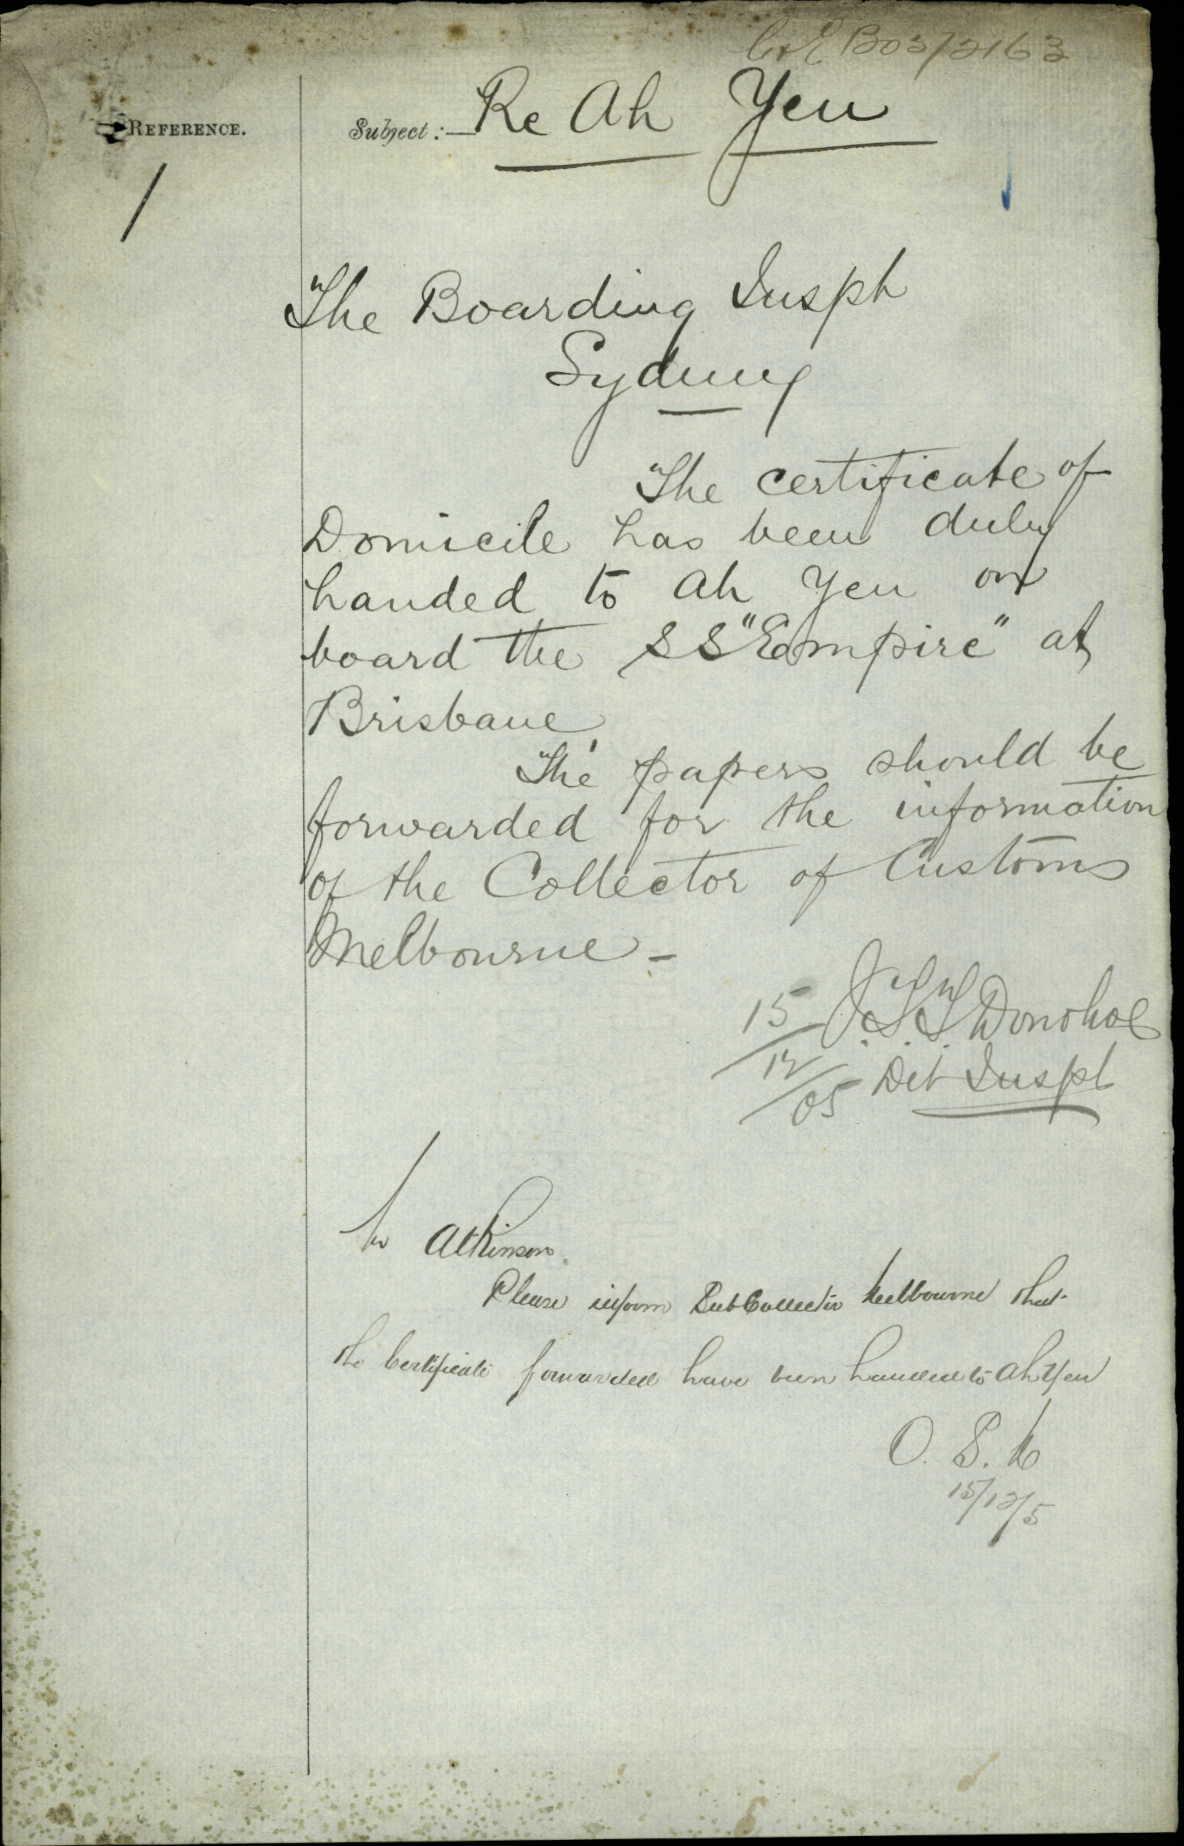 C&E B03/2163
REFERENCE.
Subject:— Re Ah Yen
1
The Boarding Inspt
Sydney
The certificate of
Domicile has been duly
handed to Ah Yen on
board the SS "Empire" at
Brisbane
The papers should be
forwarded for the information
of the Collector of Customs
Melbourne -
15/12/05 J.T.T. Donohoe
Det Inspt
Mr Atkinson.
Please inform Sub Collector Melbourne that
the Certificate forwarded have been handed to Ah Yen
O. S. M
15/12/5